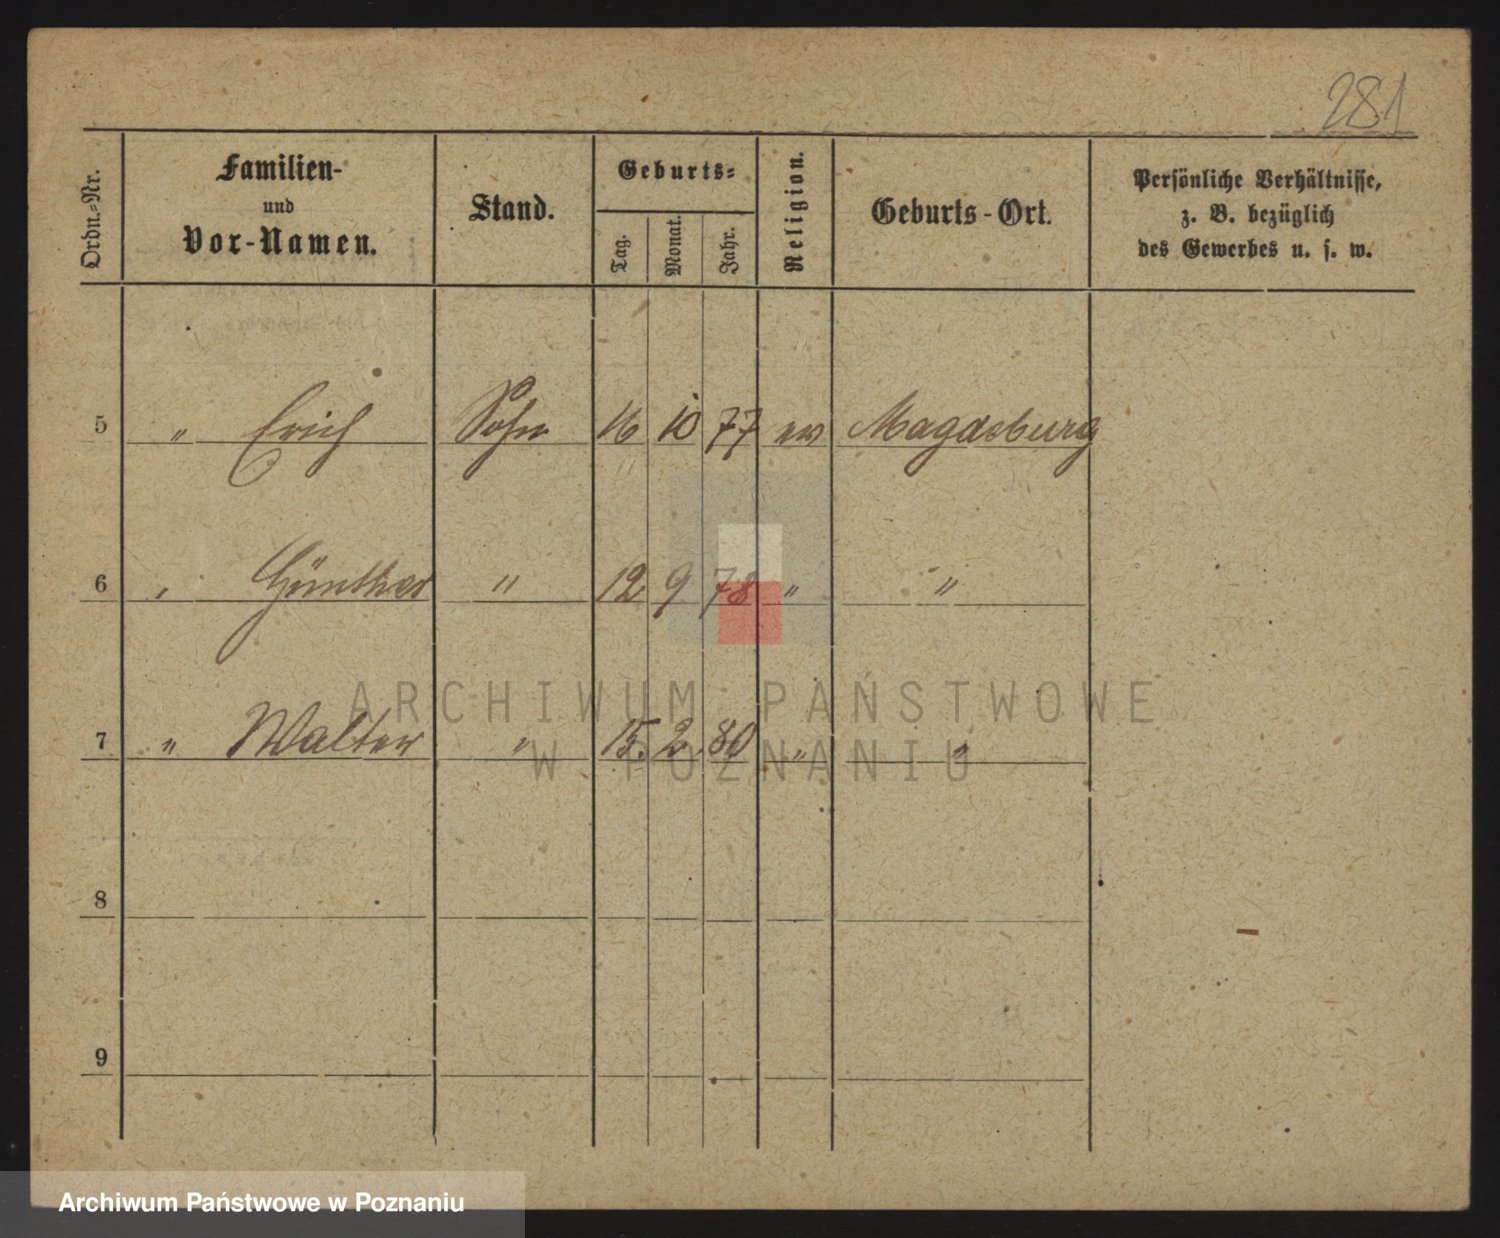 281
Ordn.-Nr.
Familien-
und
Vor-Namen.
Stand.
Geburts-
Tag.
Monat.
Jahr.
Religion.
Geburts-Ort.
Persönliche Verhältnisse,
z. B. bezüglich
des Gewerbes u. s. w.
5 " Erich Sohn 16 10 77 ev Magdeburg
6 " Günther " 12 9 78 " "
7 " Walter " 15. 2. 80 " "
8
9
ARCHIWUM PAŃSTWOWE
W POZNANIU
Archiwum Państwowe w Poznaniu